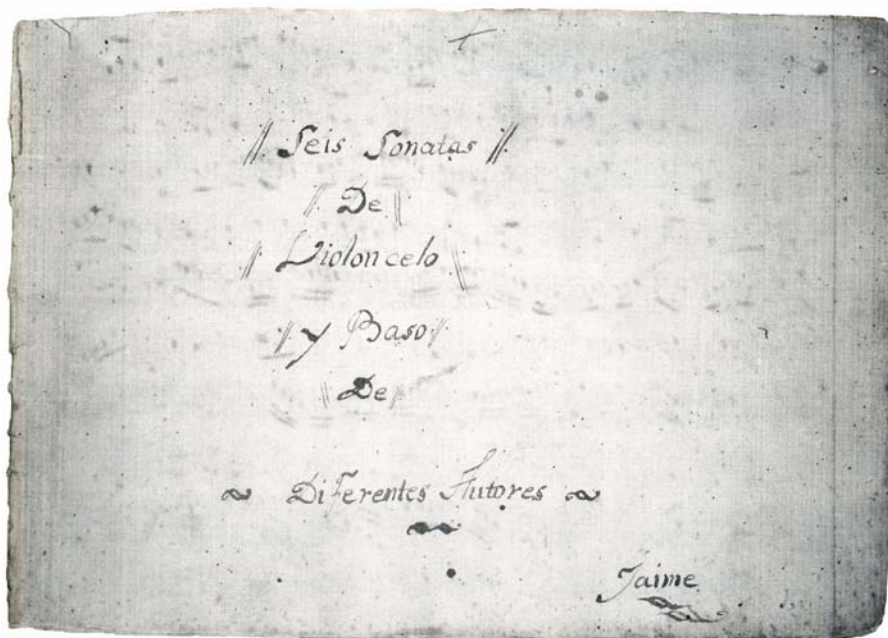 // Seis Sonatas //.
// De //
// Violoncelo //
// y Baso //.
// De //
~ Diferentes Autores ~
Jaime